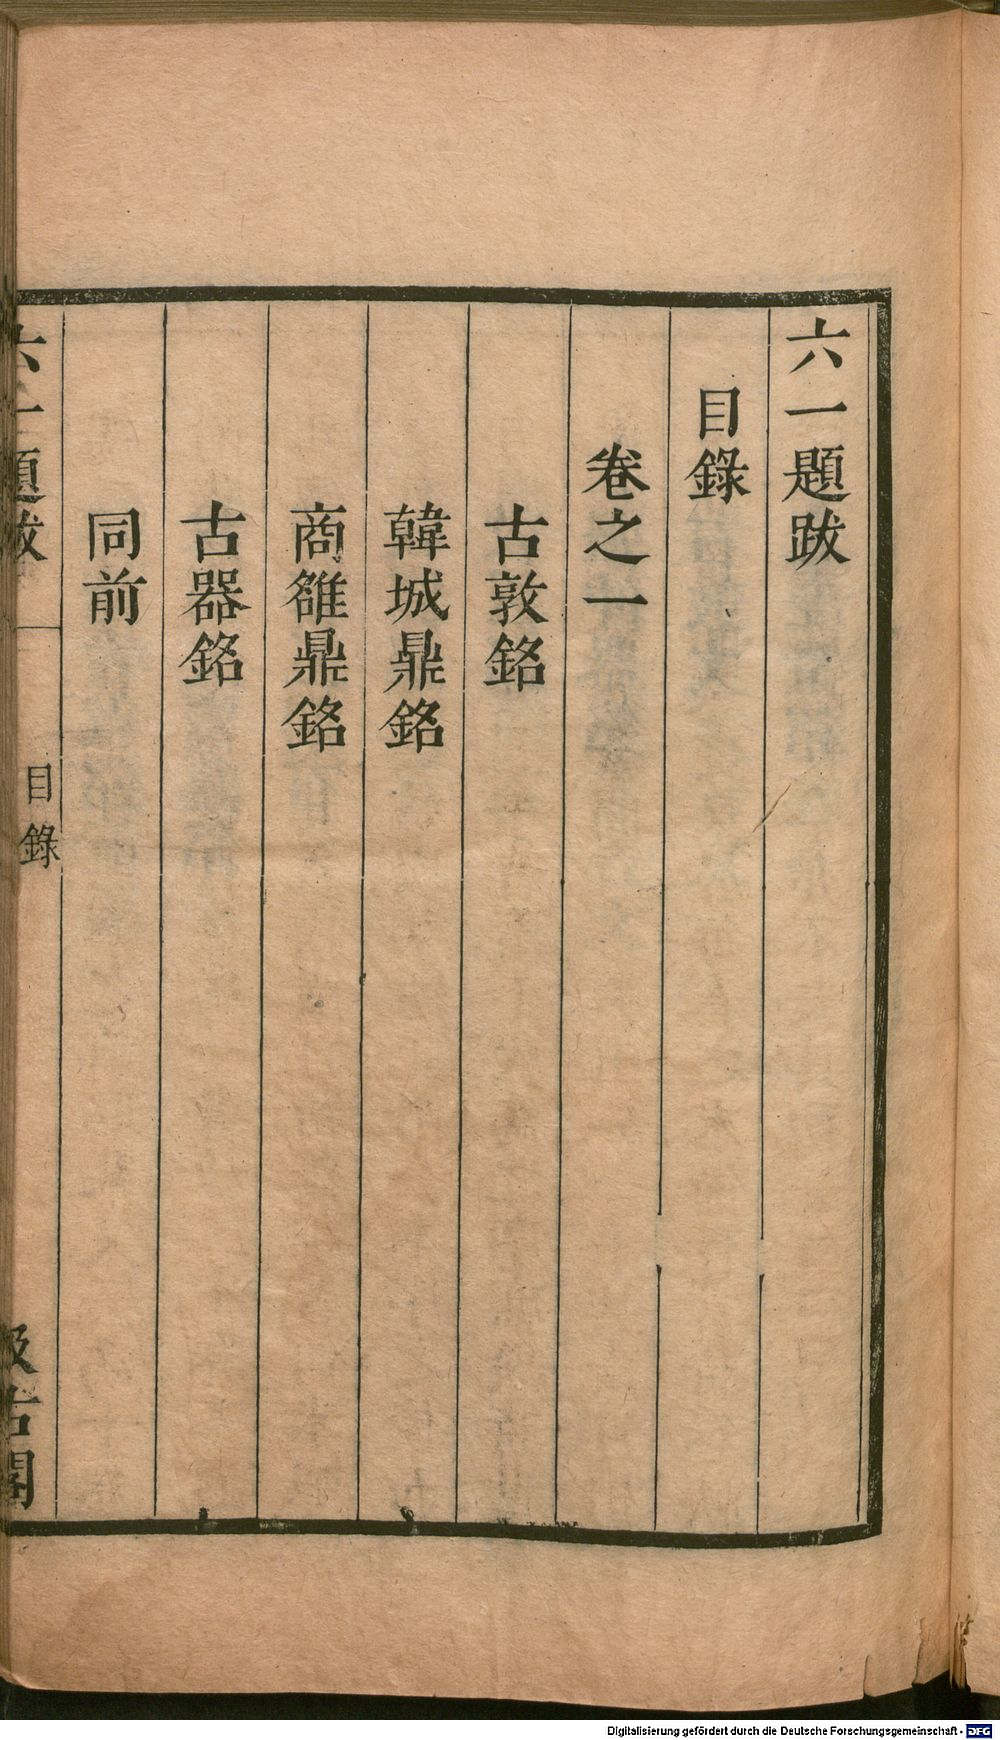 六一題跋
目錄
卷之一
古敦銘
韓城鼎銘
商雒鼎銘
古器銘
同前
六一題跋
目錄
汲古閣
Digitalisierung gefördert durch die Deutsche Forschungsgemeinschaft - DFG